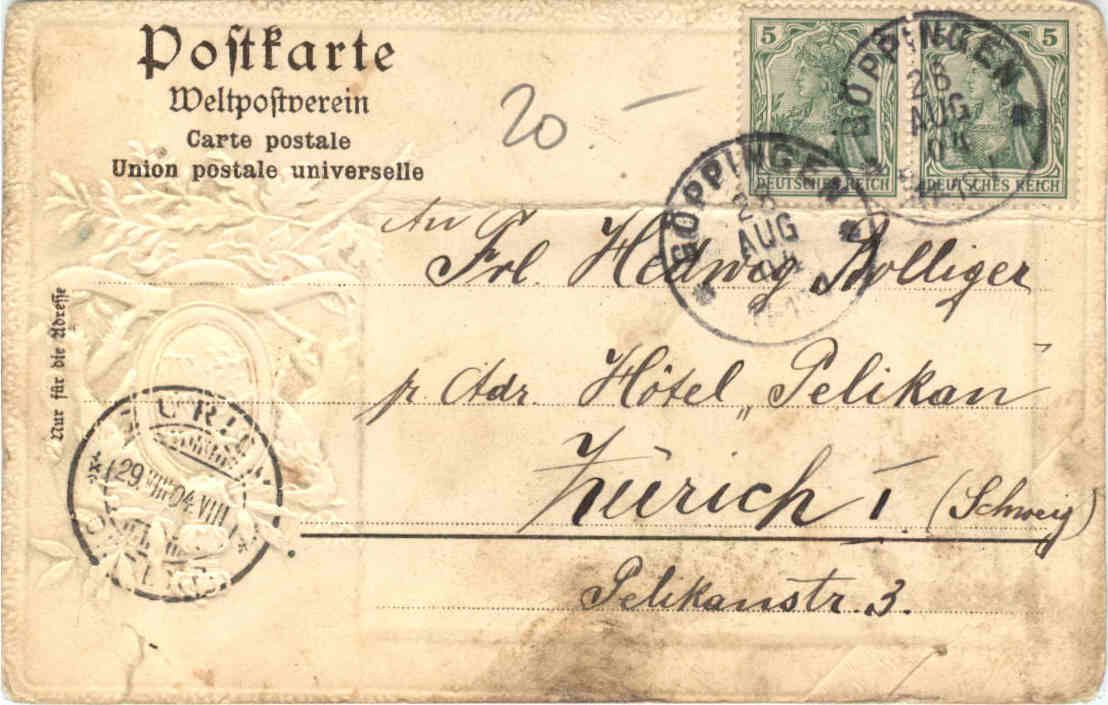 Postkarte
Weltpostverein
Carte postale
Union postale universelle
20 —
5
5
DEUTSCHES REICH
DEUTSCHES REICH
GÖPPINGEN
AUG
04
GÖPPINGEN
AUG
04
An
Frl. Hedwig Bolliger
pr. Adr. Hôtel „Pelikan"
Zürich I (Schweiz)
Pelikanstr. 3.
Nur für die Adresse
29.VIII.04.VIII